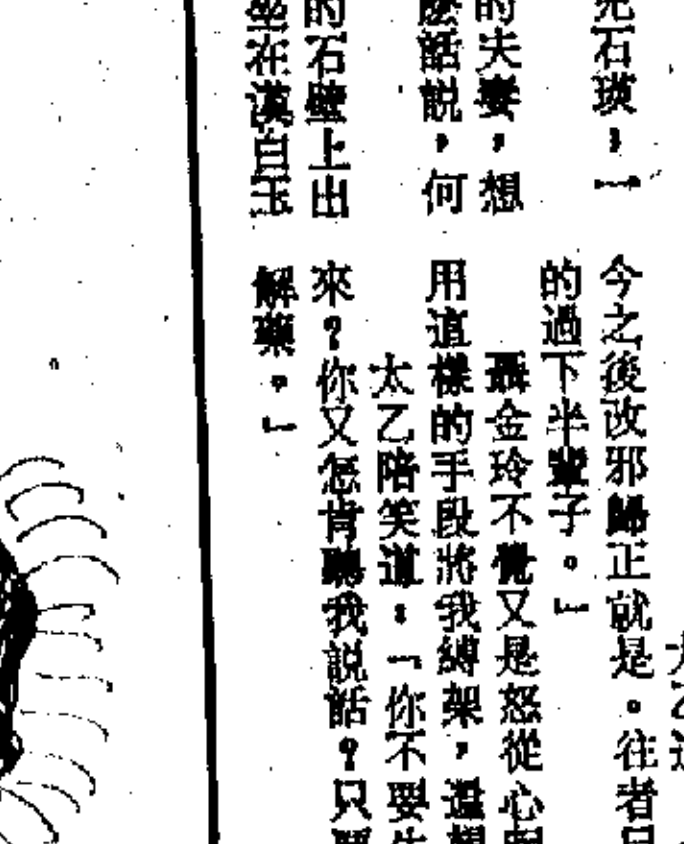 石瑛，一
的夫妻，想
麼話說，何
的石壁上出
坐在漢白玉
太乙道
今之後改邪歸正就是。往者
的過下半輩子。」
聶金玲不覺又是怒從心
用這樣的手段將我縛架，還想
太乙陪笑道：「你不要生
來？你又怎肯聽我說話？只
解藥。」